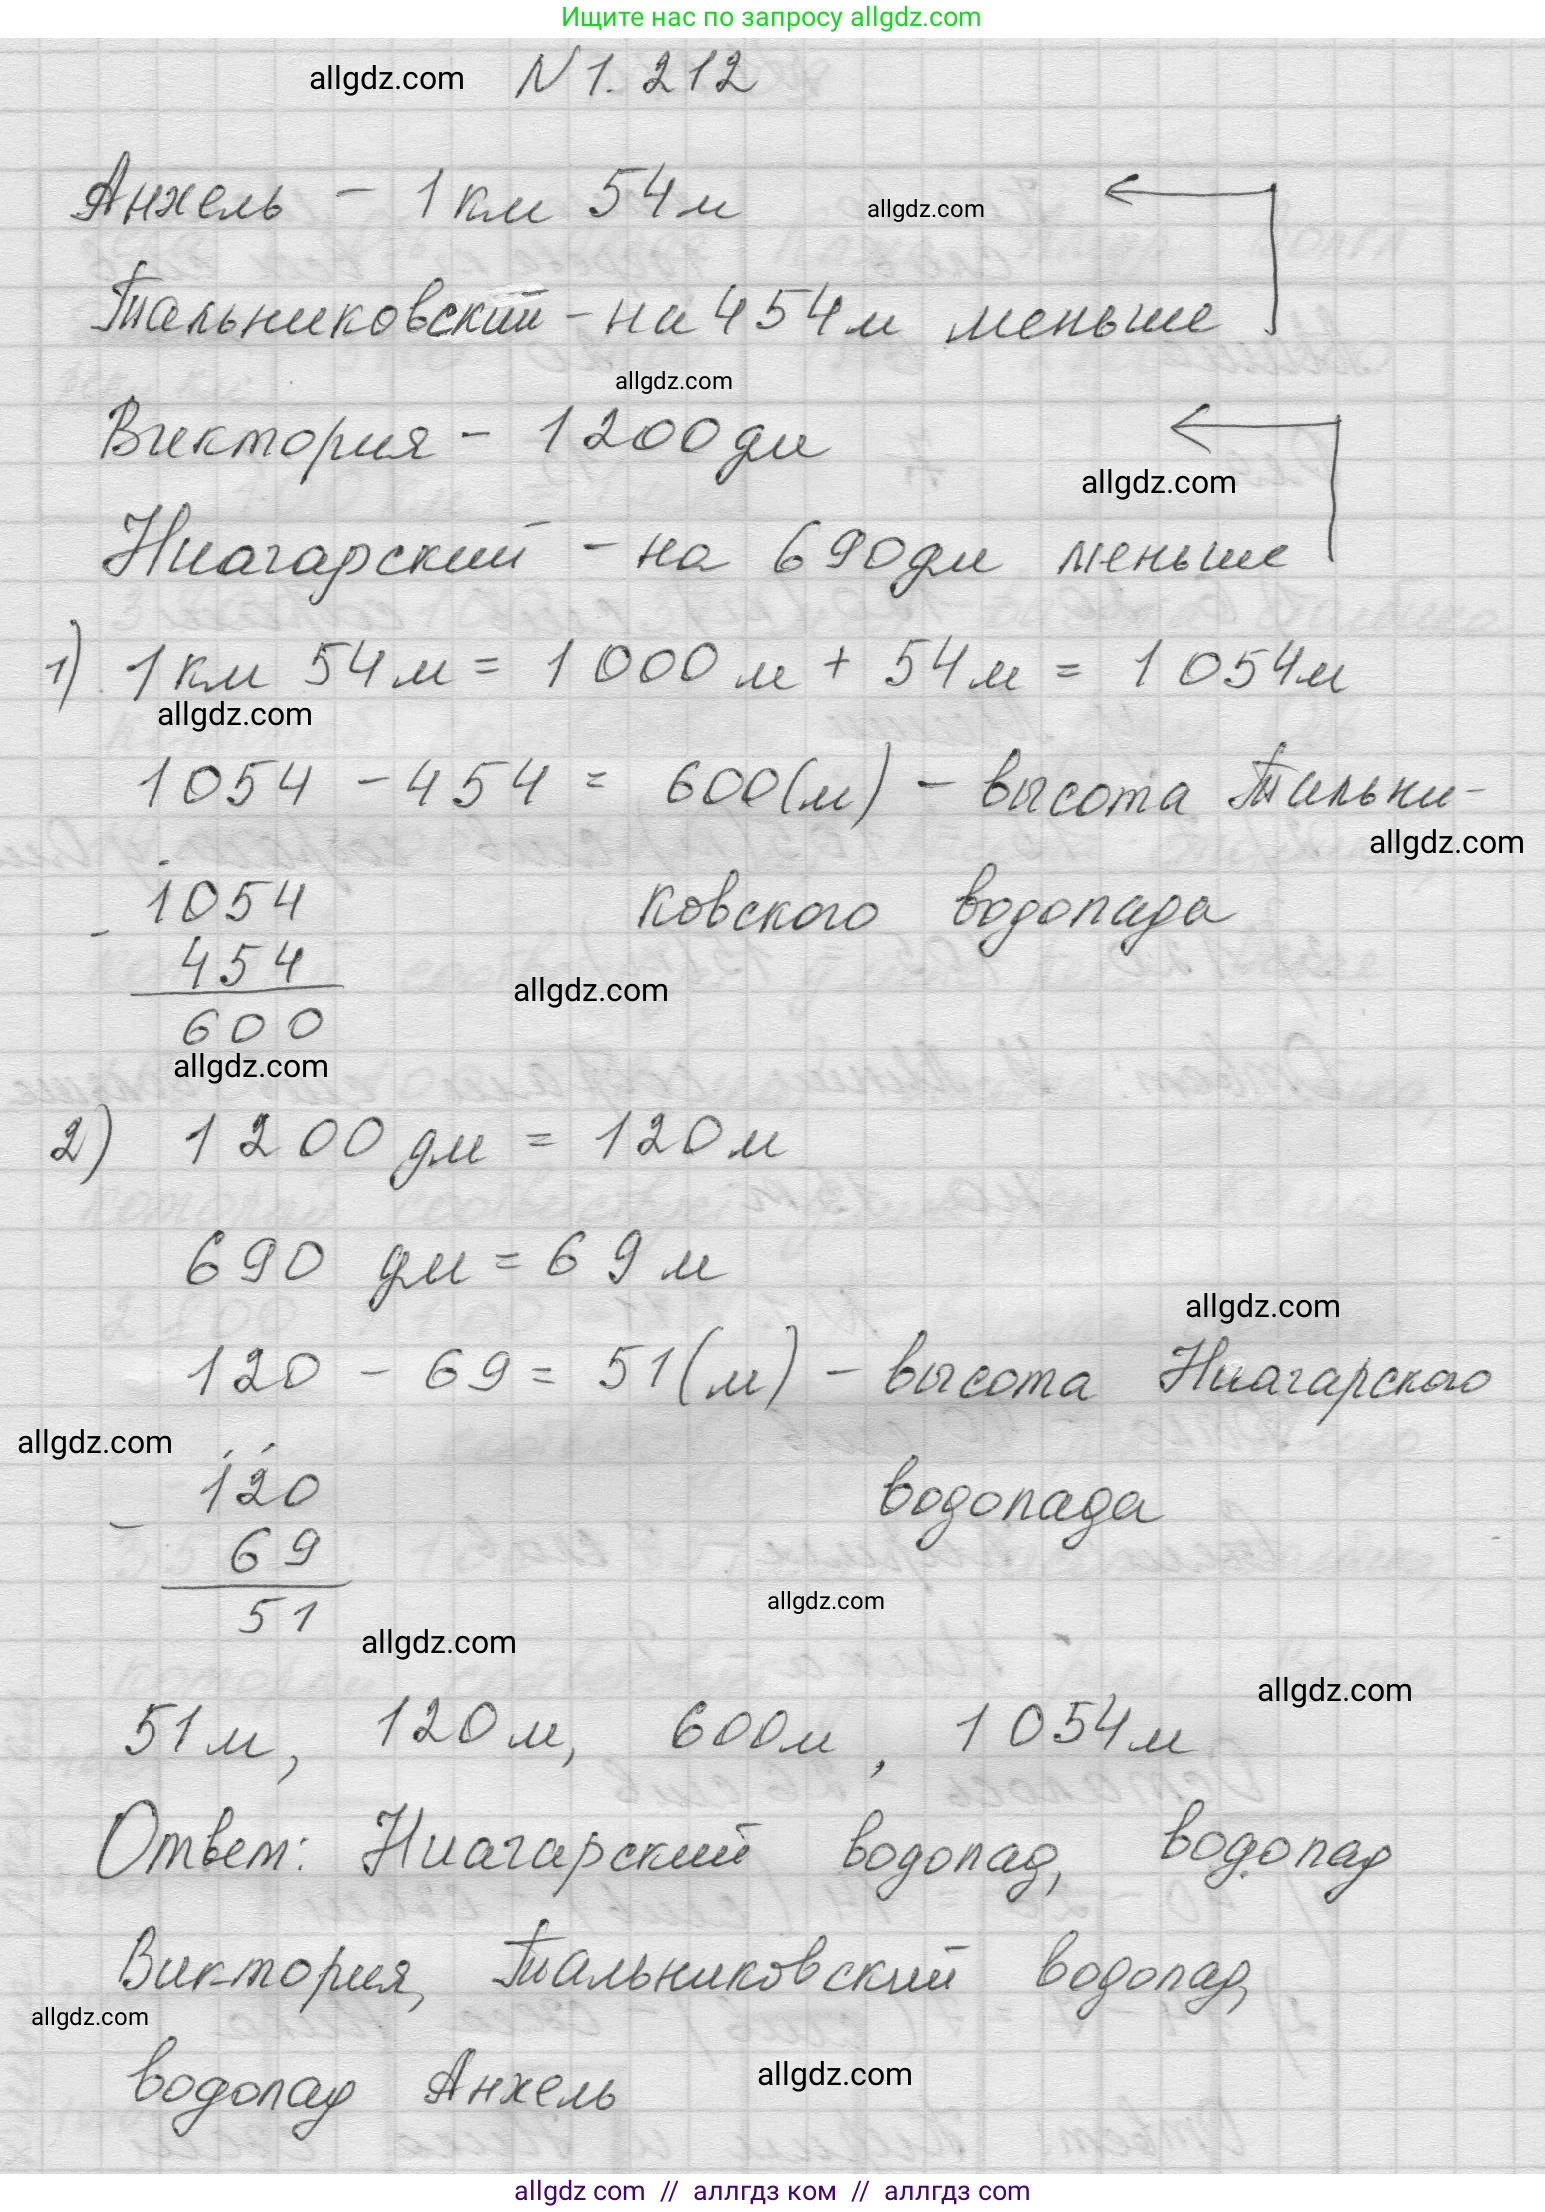 Ищите нас по запросу allgdz.com
allgdz.com N 1. 212
Анхель - 1 км 54 м allgdz.com
Тальниковский - на 454 м меньше
allgdz.com
Виктория - 1200 дм
allgdz.com
Ниагарский - на 690 дм меньше
1) 1 км 54 м = 1 000 м + 54 м = 1 054 м
allgdz.com
1054 - 454 = 600 (м) - высота Тальни-
allgdz.com
ковского водопада
1054
- 454
600
allgdz.com
allgdz.com
2) 1 200 дм = 120 м
690 дм = 69 м
allgdz.com
120 - 69 = 51 (м) - высота Ниагарского
allgdz.com
водопада
120
- 69
51
allgdz.com
allgdz.com
allgdz.com
51 м, 120 м, 600 м, 1 054 м
Ответ: Ниагарский водопад, водопад
Виктория, Тальниковский водопад,
allgdz.com
водопад Анхель allgdz.com
allgdz com // аллгдз ком // аллгдз com